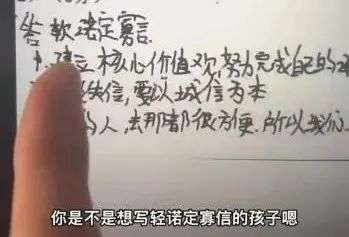 答 软诺定寡言
1.建立核心价值观努力完成自己的
失信，要以诚信为本
的人，去那都很方便.所以我们
你是不是想写轻诺定寡信的孩子嗯